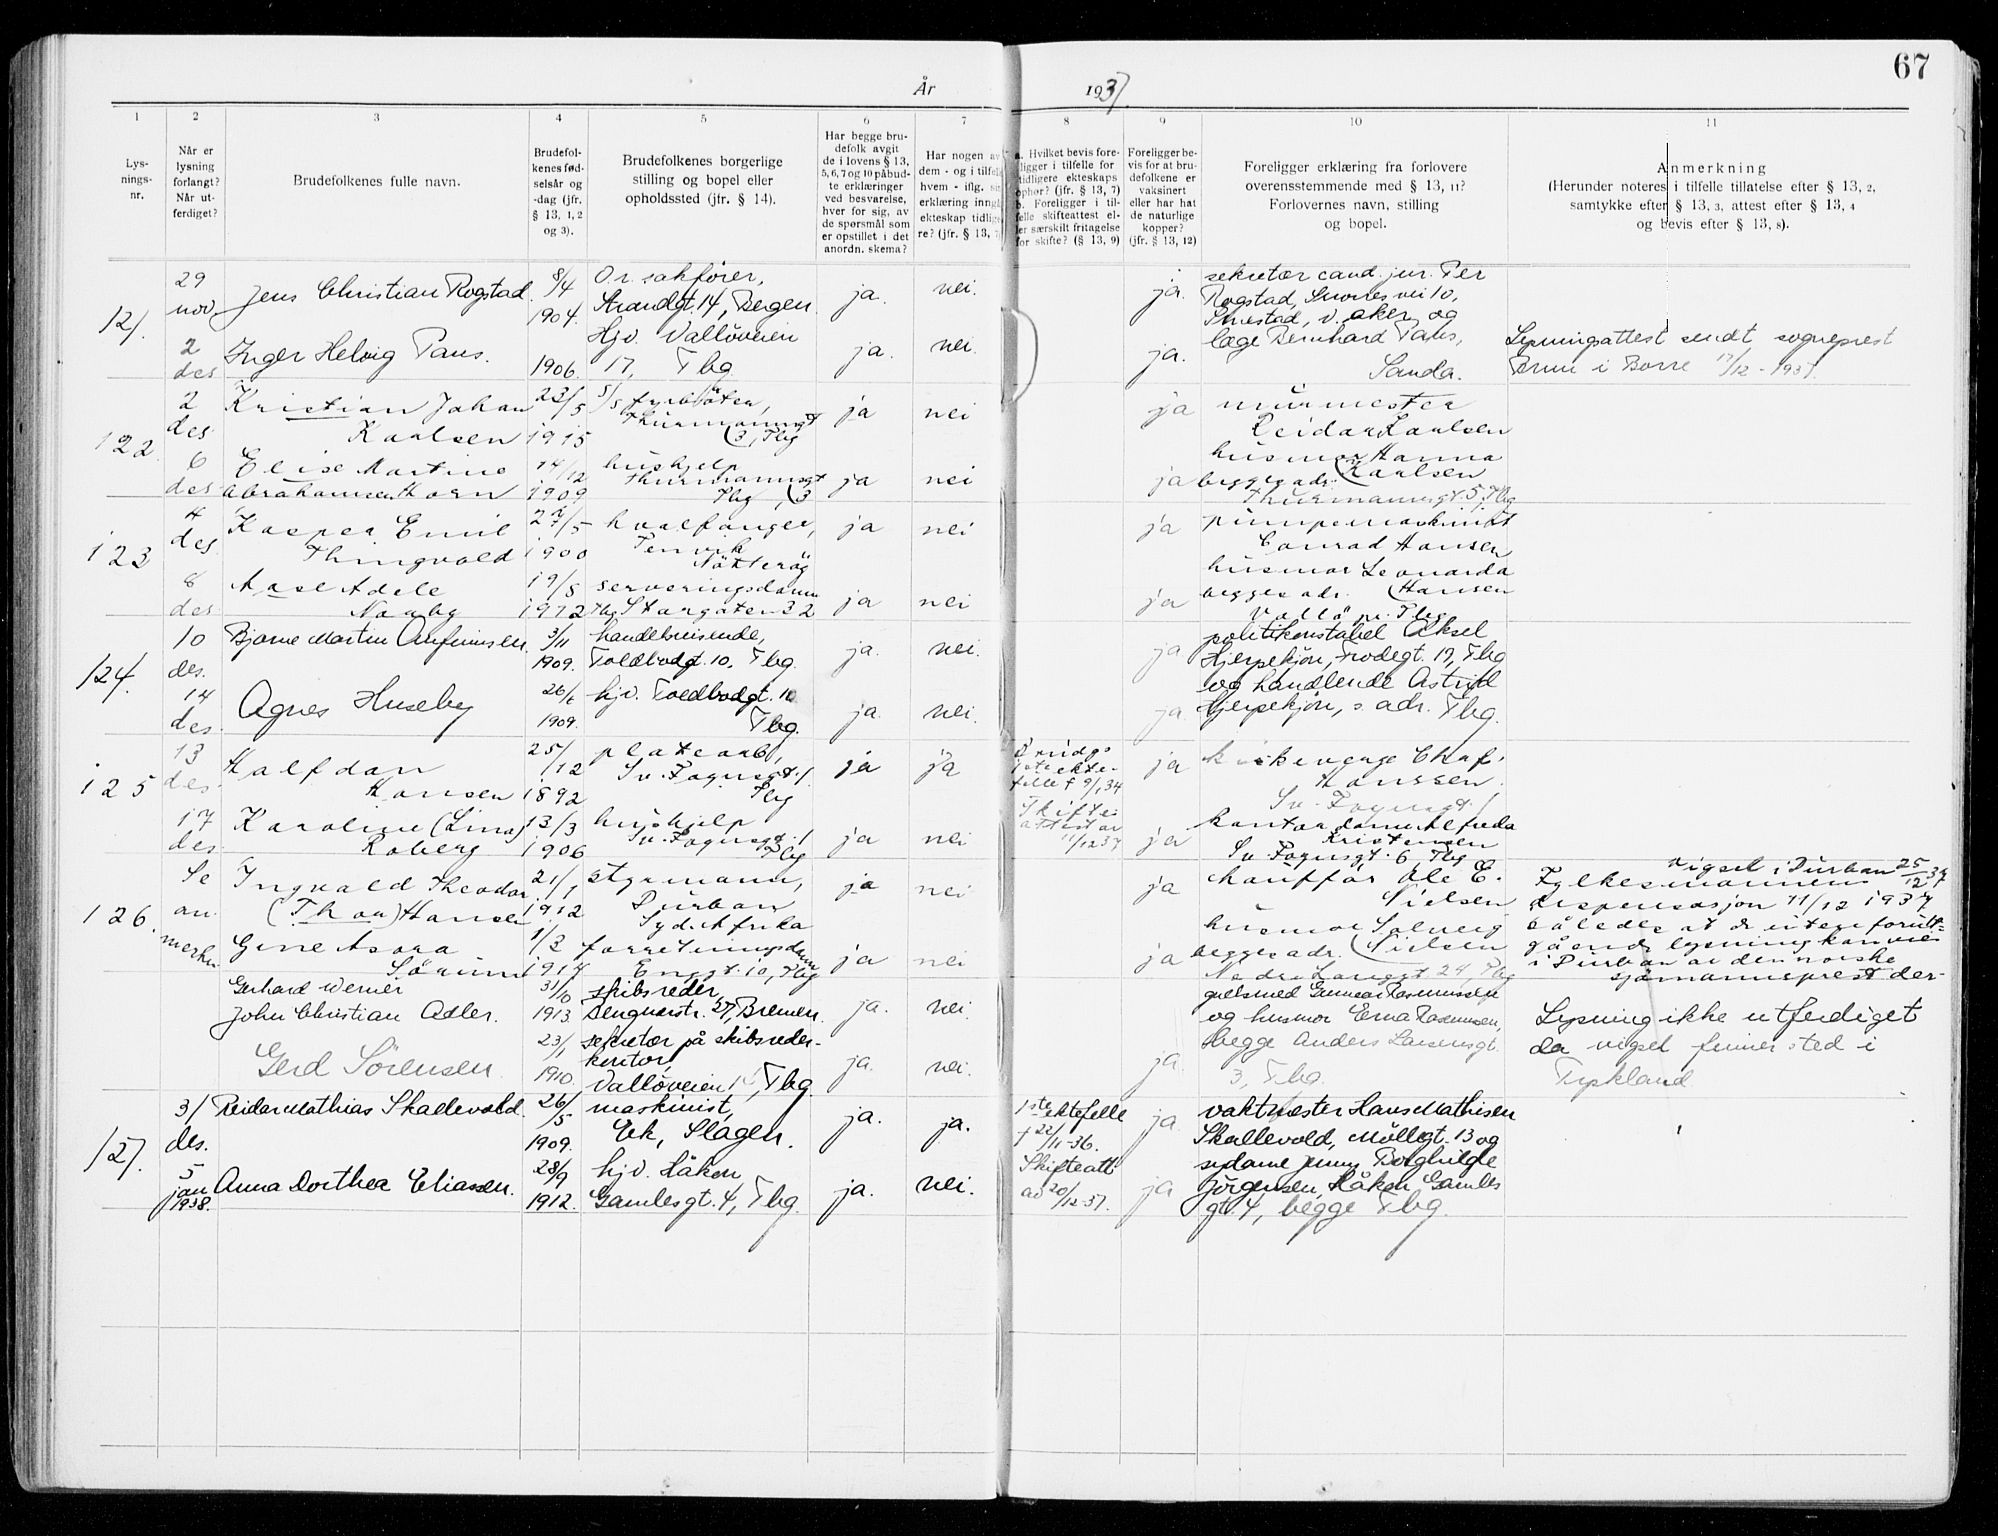 67
År 1937.
1 2 3 4 5 6 7 8 9 10 11
Lys-
nings-
nr.
Når er
lysning
forlangt?
Når ut-
ferdiget?
Brudefolkenes fulle navn.
Brudefol-
kenes fød-
selsår og
-dag (jfr.
§ 13, 1, 2
og 3).
Brudefolkenes borgerlige
stilling og bopel eller
opholdssted (jfr. § 14).
Har begge bru-
defolk avgit
de i lovens § 13,
5, 6, 7 og 10 påbud-
te erklæringer
ved besvarelse,
hver for sig, av
de spørsmål som
er opstillet i det
anordn. skema?
Har nogen av
dem - og i tilfelle
hvem - iflg. sin
erklæring inngå
ekteskap tidlige
re? (jfr. § 13, 7)
a. Hvilket bevis fore-
ligger i tilfelle for
tidligere ekteskaps
ophør? (jfr. § 13, 7)
b. Foreligger i til-
felle skifteattest el-
ler særskilt fritagelse
for skifte? (§ 13, 9)
Foreligger be-
vis for at bru-
defolkene er
vaksinert
eller har hat
de naturlige
kopper?
(jfr. § 13, 12)
Foreligger erklæring fra forlovere
overensstemmende med § 13, 11?
Forlovernes navn, stilling
og bopel.
Anmerkning
(Herunder noteres i tilfelle tillatelse efter § 13, 2,
samtykke efter § 13, 3, attest efter § 13, 4
og bevis efter § 13, 8).
121.
29
nov
Jens Christian Rogstad
8/4
1904.
O.r. sakfører,
Strandgt. 14, Bergen
ja. nei.
ja.
sekretær cand. jur. Per
Rogstad, Snorres vei 10,
Smestad, v. aker og
2
des
Inger Helvig Paus.
1906.
Hjv. Vallöveien
17, Tbg
ja. nei.
ja.
læge Bernhard Paus,
Sanda.
Lysningsattest sendt sogneprest
i Borre 17/12 - 1937.
122
2
des
Kristian Johan
Karlsen
23/5
1915
fyrböter,
Thurmannsgt
3, Tbg
ja nei
ja
murmester
Reidar Karlsen
6
des
Elise Martine
Abrahamsen Horn
14/12
1909
hushjelp
Thurmannsgt
Tbg 3
ja nei
ja
husmor Hanna
Karlsen
begges adr.
Thurmannsgt. 5, Tbg
123
4
des
Kasper Emil
Thingvold
27/5
1900
hvalfanger,
Tenvik
Nötteröy
ja nei
ja
pumpemaskinist
Conrad Hansen
8
des
Aase Adele
Naaby
19/5
1912
serveringsdame
Tbg Storgaten 32
ja nei
ja
husmor Leonarda
Hansen
begges adr.
Vallö pr. Tbg
124.
10
des.
Bjarne Martin Anfinnsen
3/11
1909.
handelsreisende,
Toldbodgt. 10, Tbg.
ja. nei.
ja
politikonstabel Aksel
Hjerpekjøn, Frodegt. 19, Tbg
14
des.
Agnes Huseby
26/6
1909.
hjv. Toldbodgt. 10
Tbg.
ja. nei.
ja.
og handlende Astrid
Hjerpekjøn, s. adr. Tbg.
125
13
des.
Halfdan
Hansen
25/12
1892
platearb,
Sv. Foynsgt. 1
Tbg
ja ja
ekte-
felle † 9/1 34
Skifte-
attest av
11/12 37
ja
kirkeverge Chaf.
Hanssen
Sv. Foynsgt. 1
17
des.
Karoline (Lina)
Roberg
13/3
1906
hushjelp
Sv. Foynsgt. 1
Tbg
ja nei
ja
kontordame Alfreda
Kristensen
Sv. Foynsgt. 6, Tbg
126.
Se
an.
merkn
Ingvald Theodor
(Thor) Hansen
21/1
1912
styrmann,
Durban
Syd. Afrika
ja nei
ja
chauffør Ole E.
Nielsen
vigsel i Durban 25/12 37
Fylkesmannens
dispensasjon 11/12 1937
således at de uten forutt-
gående lysning kan vies
i Durban av den norske
sjømannsprest der-
Gine Asora
Sörum
1/2
1917
forretningsdame
Enggt. 10, Tbg
ja nei
ja
husmor Solveig
Nielsen
begges adr.
Nedre Langgt 24, Tbg
Gerhard Werner
John Christian Adler.
31/10
1913.
skibsreder,
27, Bremen.
ja. nei.
gullsmed Gunnar Rasmussen
og husmor Erna Rasmussen,
Lysning ikke utferdiget
da vigsel finner sted i
Tyskland
Gerd Sörensen
23/1
1910.
sekretær på skibsreder-
kontor,
Vallöveien 1, Tbg.
ja. nei.
ja.
begge Anders Larsensgt.
3, Tbg.
127.
31
des.
Reidar Mathias Skallevold.
26/5
1909.
maskinist,
Eik, Slagen.
ja. ja.
1ste ektefelle
† 22/11-36.
Skifteatt
av 20/12-37.
ja
vaktmester Hans Mathisen
Skallevold, Møllegt. 13 og
5
jan
1938.
Anna Dorthea Eliassen.
28/9
1912.
hjv. Håkon
Gamlesgt. 4, Tbg.
ja. nei.
ja
sydame Jenny Borghilde
Jørgensen, Håkon Gamles
gt. 4, begge Tbg.